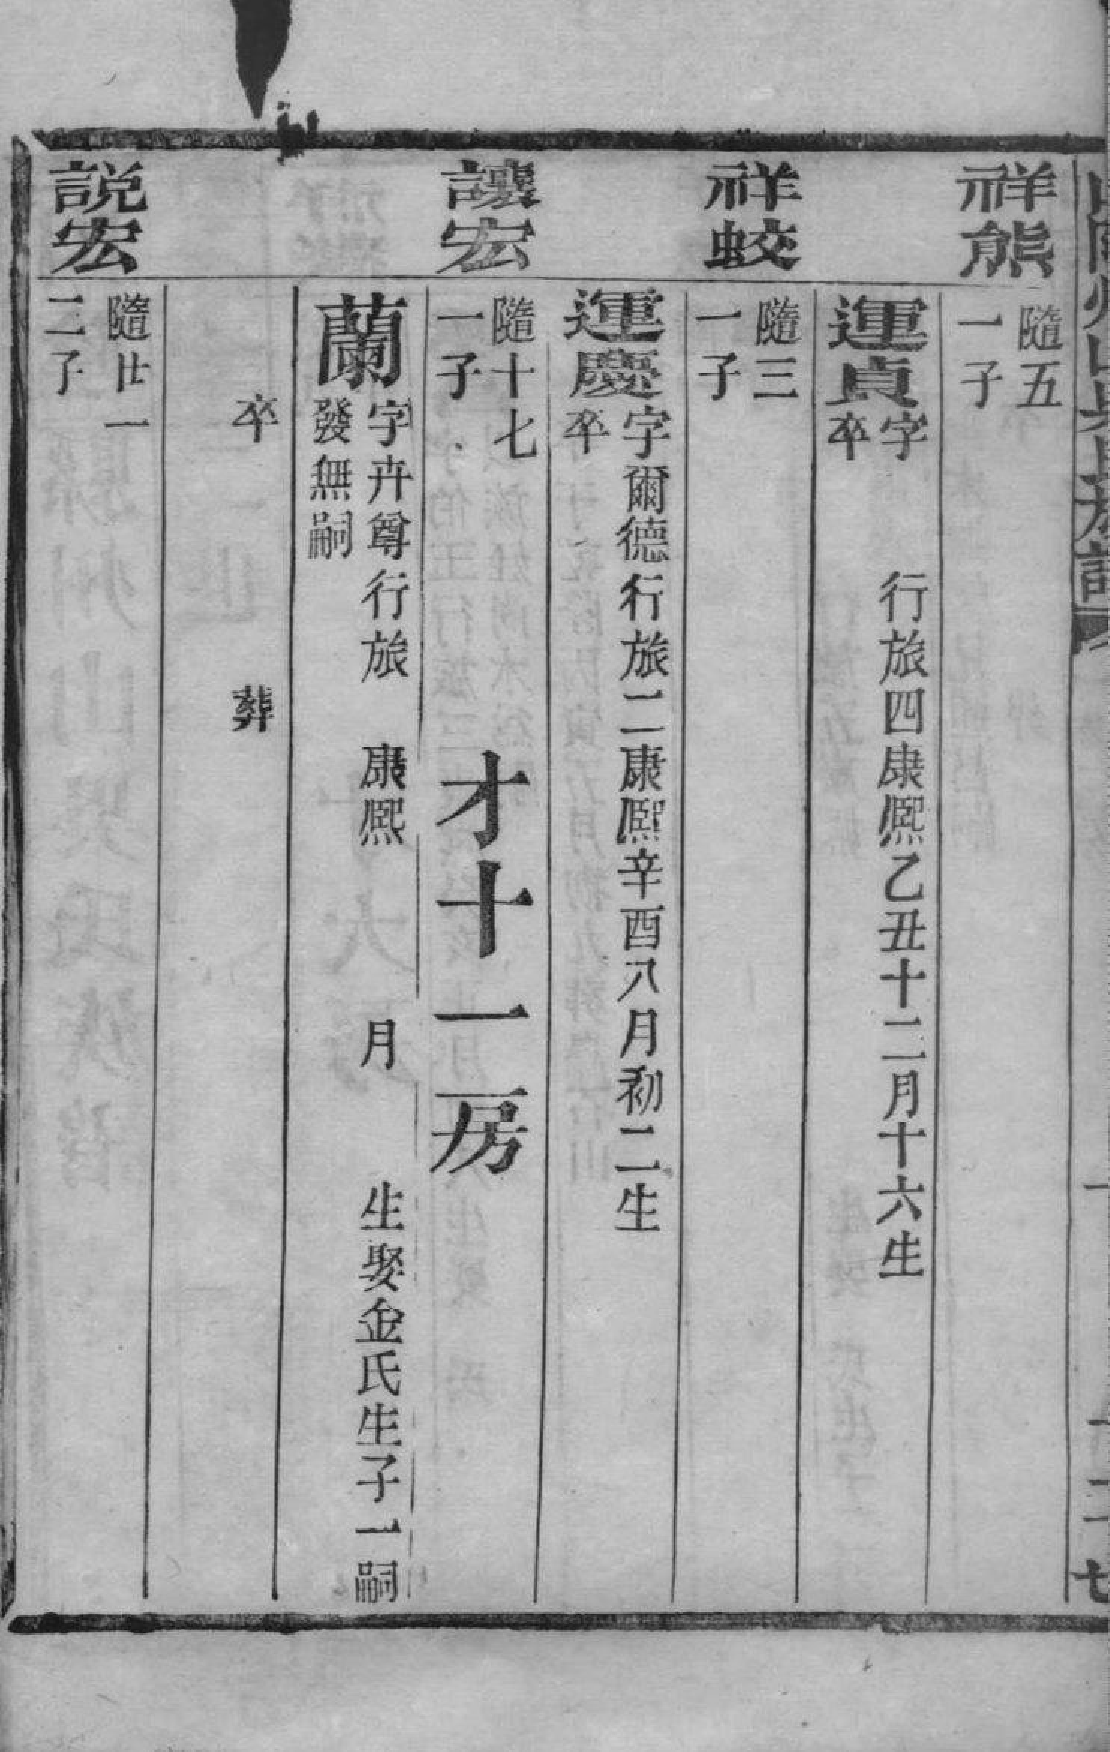 山陰州山吳氏族譜
祥熊
隨五
一子
運貞
字　行旅四康熙乙丑十二月十六生
卒
祥蛟
隨三
一子
運慶
字爾德行旅二康熙辛酉八月初二生
卒
讓宏
隨十七
一子
才十一房
蘭
字卉尊行旅　康熙　月　生娶金氏生子一嗣
發無嗣
卒　葬
說宏
隨廿一
二子